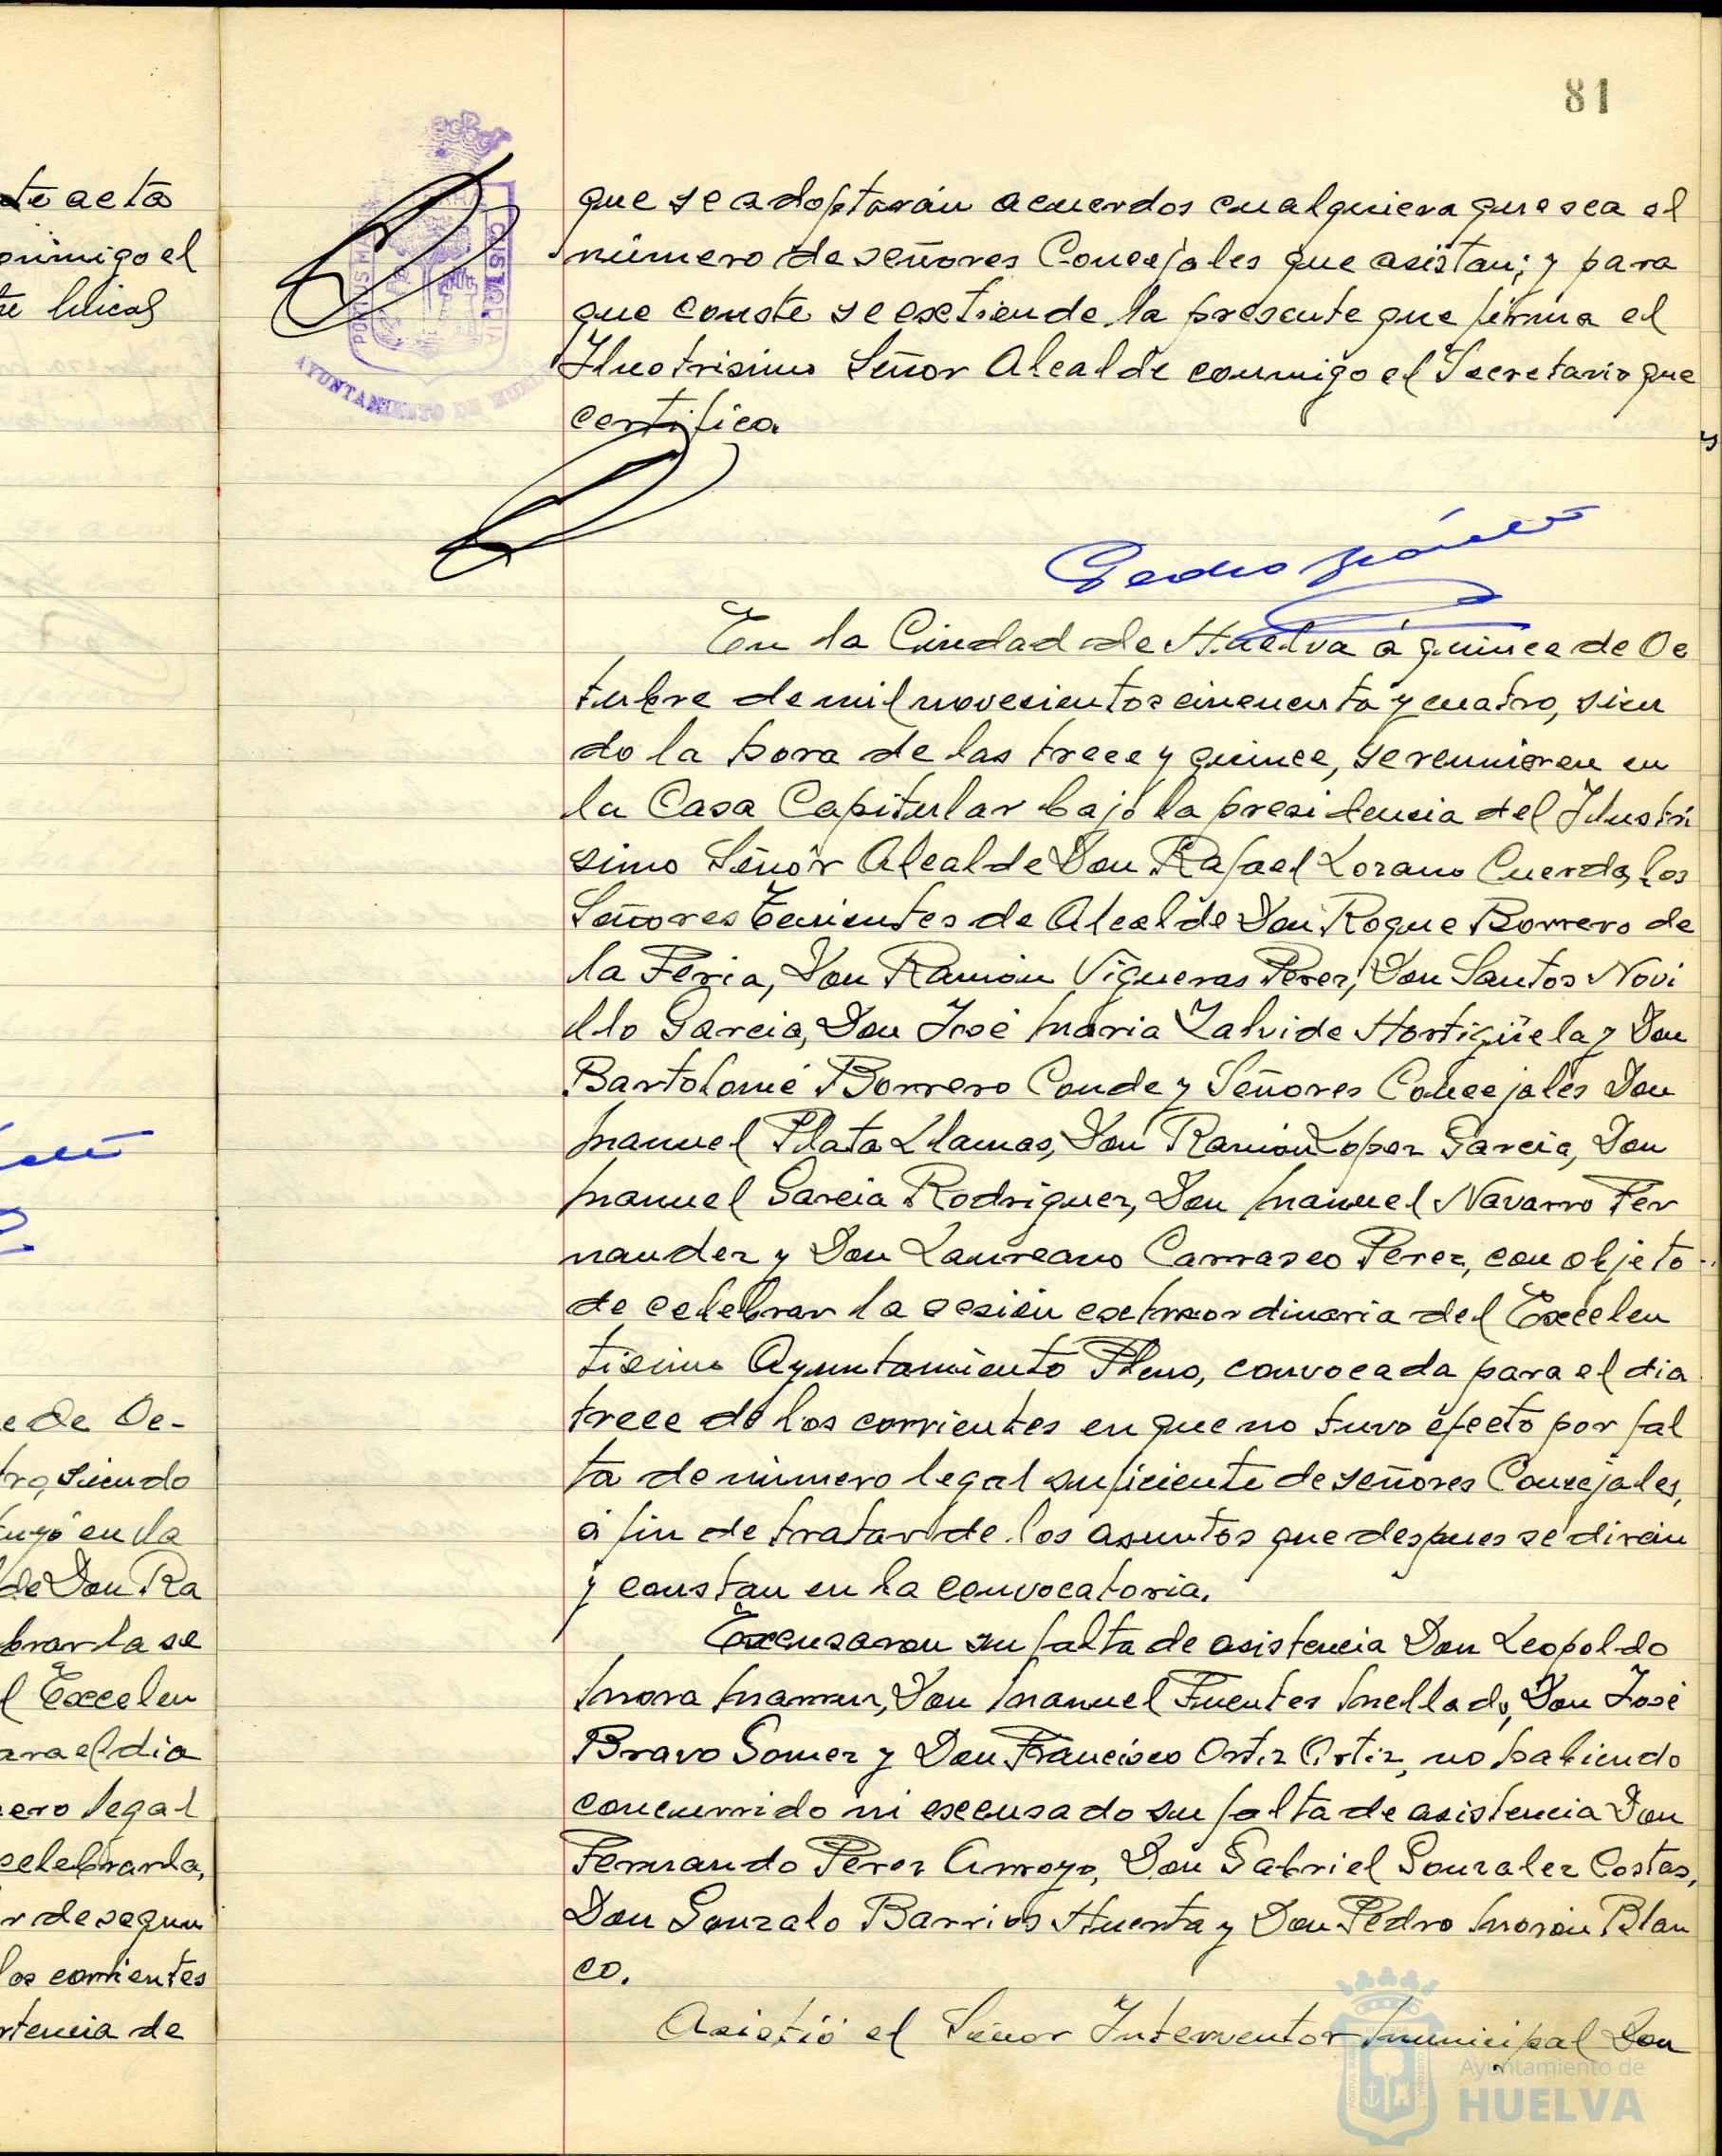 81
te acta
onmigo el
que se adoptarán acuerdos cualquiera que sea el
número de señores Concejales que asistan; y para
que conste se extiende la presente que firma el
Ilustrisimo Señor Alcalde conmigo el Secretario que
certifica.
PORTUS M
CUSTODIA
AYUNTAMIENTO DE HUELVA
Pedro
En la Ciudad de Huelva a quince de Oc
tubre de mil novecientos cincuenta y cuatro, sien
do la hora de las trece y quince, se reunieron en
la Casa Capitular bajo la presidencia del Ilustrí
simo Señor Alcalde Don Rafael Lozano Cuerda, los
Señores Tenientes de Alcalde Don Roque Borrero de
la Feria, Don Ramón Vigueras Perez, Don Santos Novi
llo Garcia, Don José Maria Zalvide Hortigüela y Don
Bartolomé Borrero Conde y Señores Concejales Don
Manuel Plata Llamas, Don Ramón Lopez Garcia, Don
Manuel Garcia Rodriguez, Don Manuel Navarro Fer
nandez y Don Laureano Carrasco Perez, con objeto
de celebrar la sesión extraordinaria del Excelen
tisimo Ayuntamiento Pleno, convocada para el dia
trece de los corrientes en que no tuvo efecto por fal
ta de número legal suficiente de señores Concejales,
a fin de tratar de los asuntos que despues se dirán
y constan en la convocatoria.
Excusaron su falta de asistencia Don Leopoldo
Mora Don Manuel Fuentes Mellado, Don José
Bravo Gomez y Don Francisco Ortiz Ortiz, no habiendo
concurrido ni excusado su falta de asistencia Don
Fernando Perez Arroyo, Don Gabriel Gonzalez Costas,
Don Gonzalo Barrios Huerta y Don Pedro Morón Blan
co.
Asistió el Señor Interventor Municipal Don
e de Oc-
tro, siendo
en la
de Don Ra
brar la se
l Excelen
ara el dia
ero legal
celebrarla,
r de segun
los corrientes
rtencia de
Ayuntamiento de
HUELVA